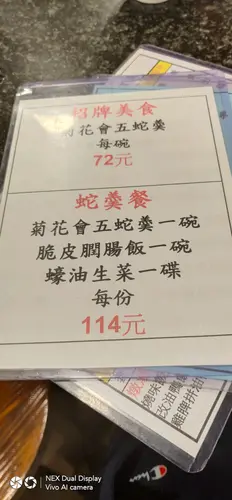 招牌美食
菊花會五蛇羹
每碗
72元
蛇羹餐
菊花會五蛇羹一碗
脆皮膶腸飯一碗
蠔油生菜一碟
每份
114元
NEX Dual Display
Vivo AI camera